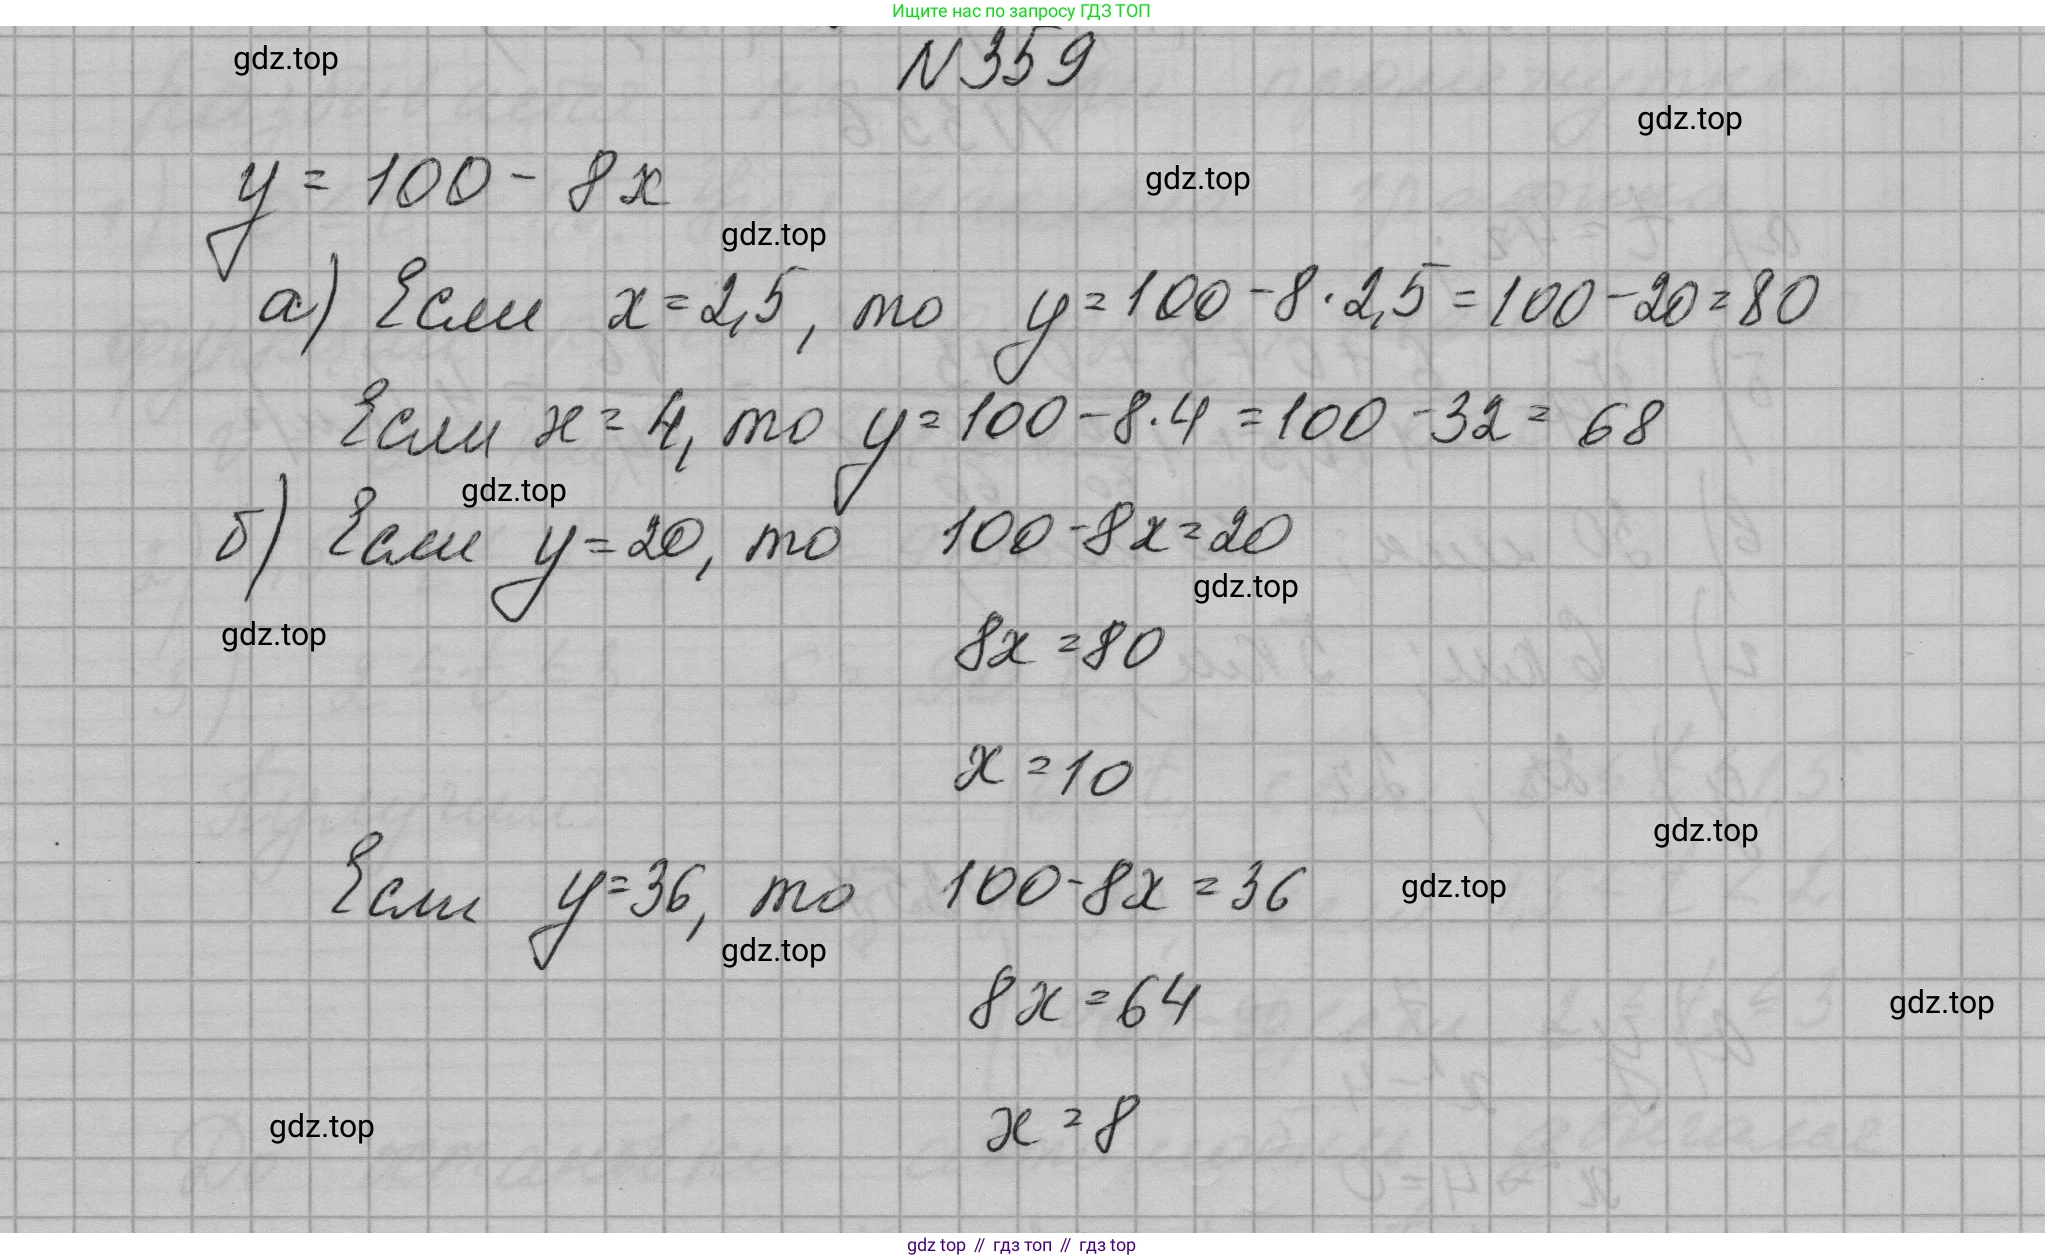 Ищите нас по запросу ГДЗ ТОП
N 359
gdz.top
gdz.top
y = 100 - 8x
gdz.top
gdz.top
а) Если x = 2,5, то y = 100 - 8 · 2,5 = 100 - 20 = 80
Если x = 4, то y = 100 - 8 · 4 = 100 - 32 = 68
gdz.top
б) Если y = 20, то 100 - 8x = 20
gdz.top
gdz.top
8x = 80
x = 10
gdz.top
Если y = 36, то 100 - 8x = 36
gdz.top
gdz.top
8x = 64
gdz.top
gdz.top
x = 8
gdz top // гдз топ // gdz top